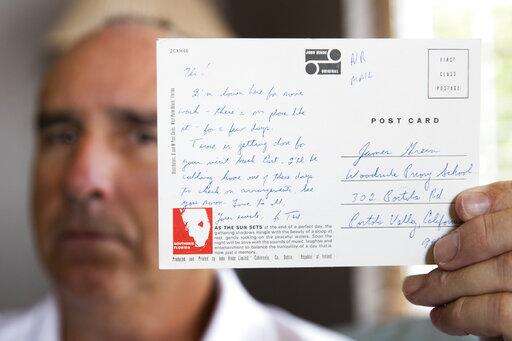 JOHN HINDE
ORIGINAL
AIR
MAIL
FIRST
CLASS
POSTAGE
POST CARD
Hi!
I'm down here for more
work - there's no place like
it - for a few days.
Time is getting close for
your visit back East. I'll be
calling home one of these days
to check on arrangements. See
you soon. Love to all.
Yours
Ted
James Green
Woodside Priory School
302 Portola Rd
Portola Valley, California
9
SOUTHERN
FLORIDA
AS THE SUN SETS at the end of a perfect day, the
gathering shadows mingle with the beauty of a
rest gently rocking on the peaceful waters. Soon the
night will be alive with the sounds of music, laughter and
entertainment to balance the tranquility of a day that is
now just a memory.
Produced and Printed by John Hinde Limited, Cabinteely, Co. Dublin, Republic of Ireland.